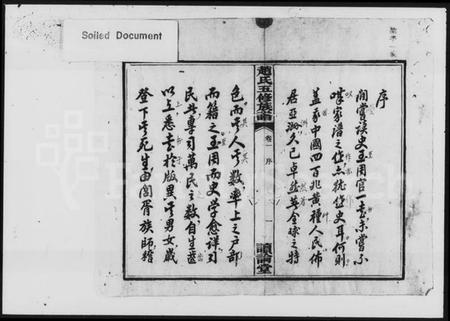 Soiled Document
序
閒嘗讀史至周官一書未嘗不
嘆家譜之作亦猶史耳何則
蓋我中國四百兆黃種人民佈
居亞洲久已卓然著全球之特
趙氏五修族譜
卷一 序
讀論堂
色而其人其數率上之戶部
而籍之至周而史學愈詳司
民其專司萬民之數自生齒
以上悉書於版異其男女歲
登下其死生由閭胥族師稽